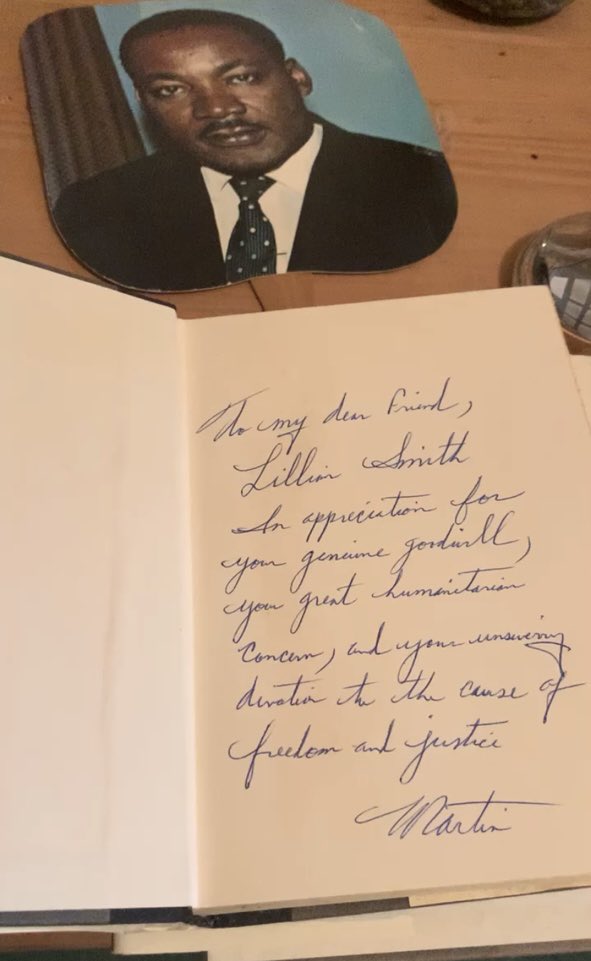 To my dear Friend,
Lillian Smith
In appreciation for
your genuine goodwill,
your great humanitarian
concern, and your unswerving
devotion to the cause of
freedom and justice
Martin